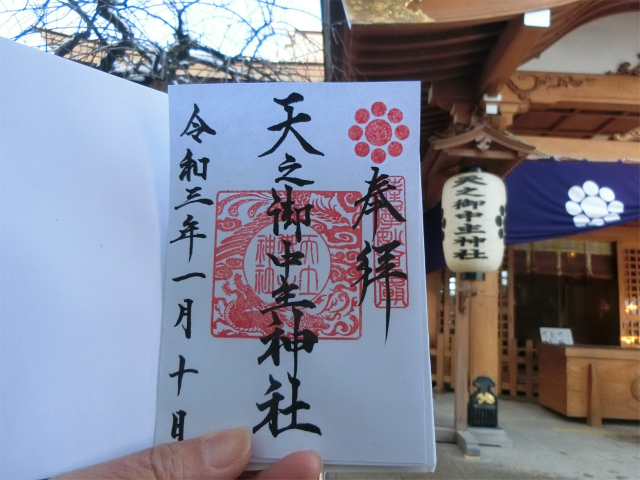 奉拝
天之御中主神社
令和三年一月十日
天之御中主神社